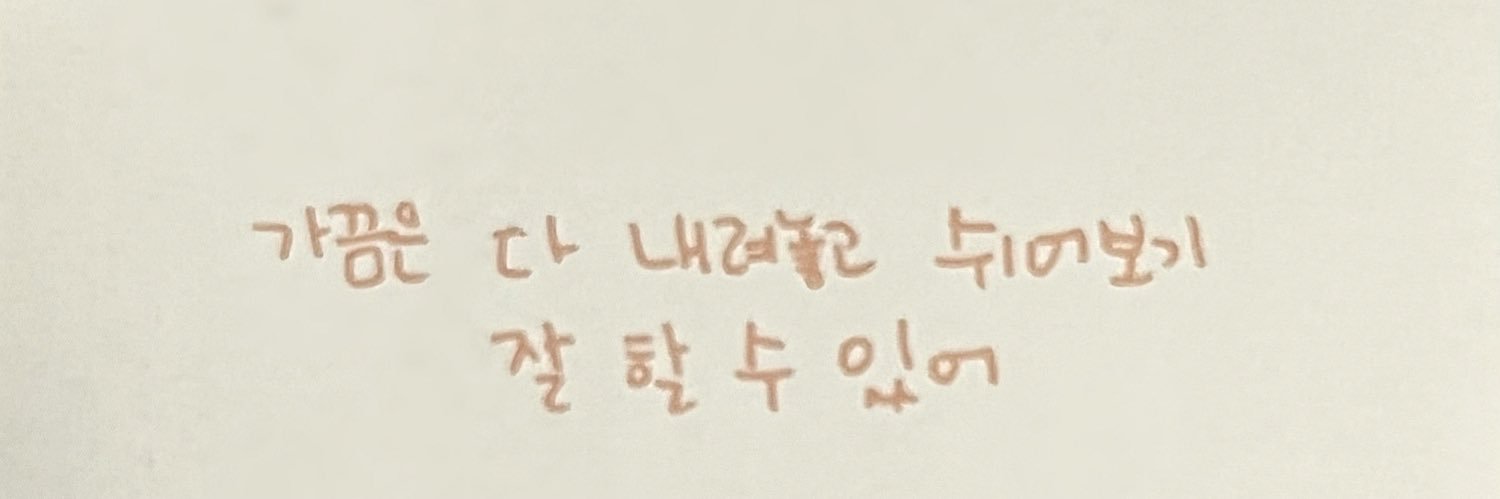 가끔은 다 내려놓고 쉬어보기
잘 할 수 있어